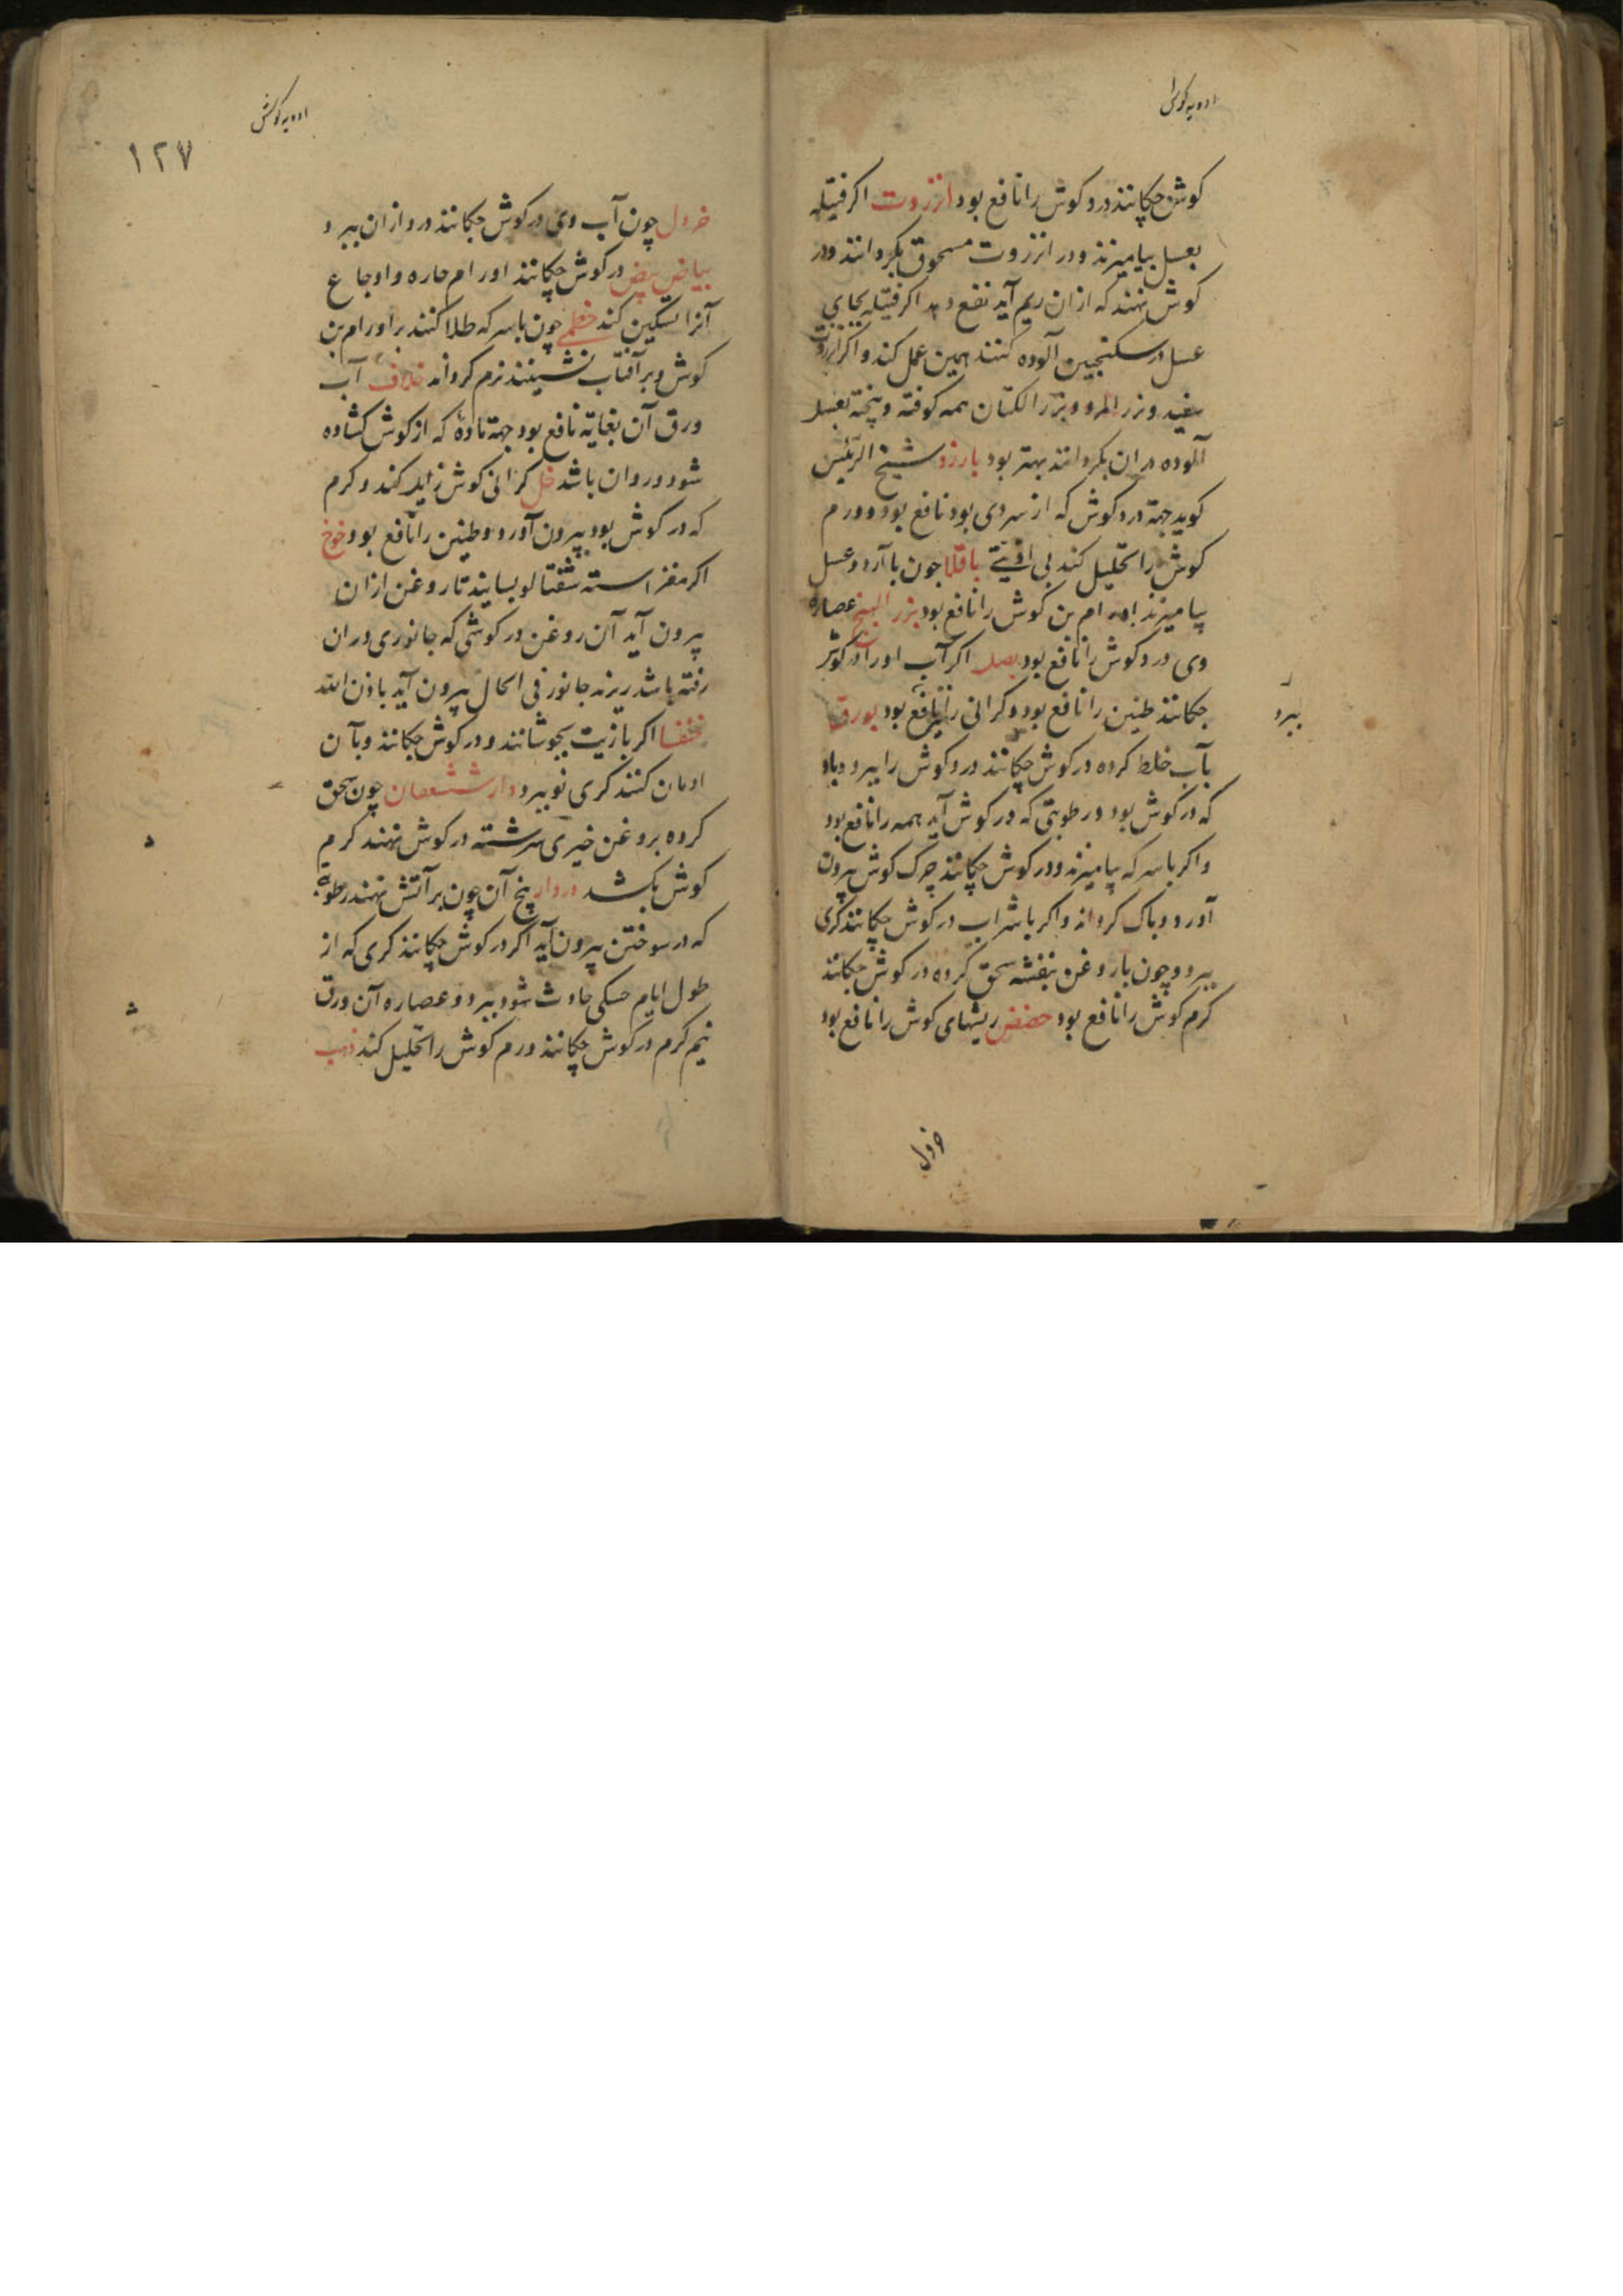 ادویه گوش
کوش چکانند درد کوش را نافع بود انزروت اکر فتیله
بعسل بیامیزند و در انزروت مسحوق بکردانند و در
کوش نهند که ازان ریم آید نفع دهد اکر فتیله بجای
عسل در سکنجبین آلوده کنند همین عمل کند و اکر انزروت
سفید و بزر المرو و بزر الکتان همه کوفته و پیخته بعسل
آلوده دران بکردانند بهتر بود بارزد شیخ الرئیس
کوید جهة درد کوش که از سردی بود نافع بود و ورم
کوش را تحلیل کند بی اذیتی باقلا چون با آرد و عسل
بیامیزند اورام بن کوش را نافع بود بزر البنج عصاره
وی درد کوش را نافع بود بصل اکر آب او را در کوش
چکانند طنین را نافع بود و کرانی را نافع بود بورق
بآب خلط کرده در کوش چکانند درد کوش را ببرد و باد
که در کوش بود و رطوبتی که در کوش آید همه را نافع بود
و اکر با سرکه بیامیزند و در کوش چکانند چرک کوش بیرون
آورد و پاک کرداند و اکر با شراب در کوش چکانند کری
ببرد و چون با روغن بنفشه سحق کرده در کوش چکانند
کرم کوش را نافع بود حضض ریشهای کوش را نافع بود
ببرد
خردل
ادویه کوش
١٢٧
خردل چون آب وی در کوش چکانند درد ازان ببرد
بیاض بیض در کوش چکانند اورام حاره و اوجاع
آنرا تسکین کند خطمی چون با سرکه طلا کنند بر اورام بن
کوش و بر آفتاب نشینند نرم کرداند خلاف آب
ورق آن بغایة نافع بود جهة مادۀ که از کوش کشاده
شود و روان باشد خل کرانی کوش زایل کند و کرم
که در کوش بود بیرون آورد و طنین را نافع بود خوخ
اکر مغز استه شفتالو بسایند تا روغن ازان
بیرون آید آن روغن در کوشی که جانوری دران
رفته باشد ریزند جانور فی الحال بیرون آید باذن الله
خنفسا اکر با زیت بجوشانند و در کوش چکانند و بآن
ادمان کنند کری نو ببرد دار ششعان چون سحق
کرده بروغن خیری سرشته در کوش نهند کرم
کوش بکشد دردار بیخ آن چون بر آتش نهند رطوبة
که در سوختن بیرون آید اکر در کوش چکانند کری که از
طول ایام خسکی حادث شود ببرد و عصاره آن ورق
نیم کرم در کوش چکانند ورم کوش را تحلیل کند ذهب